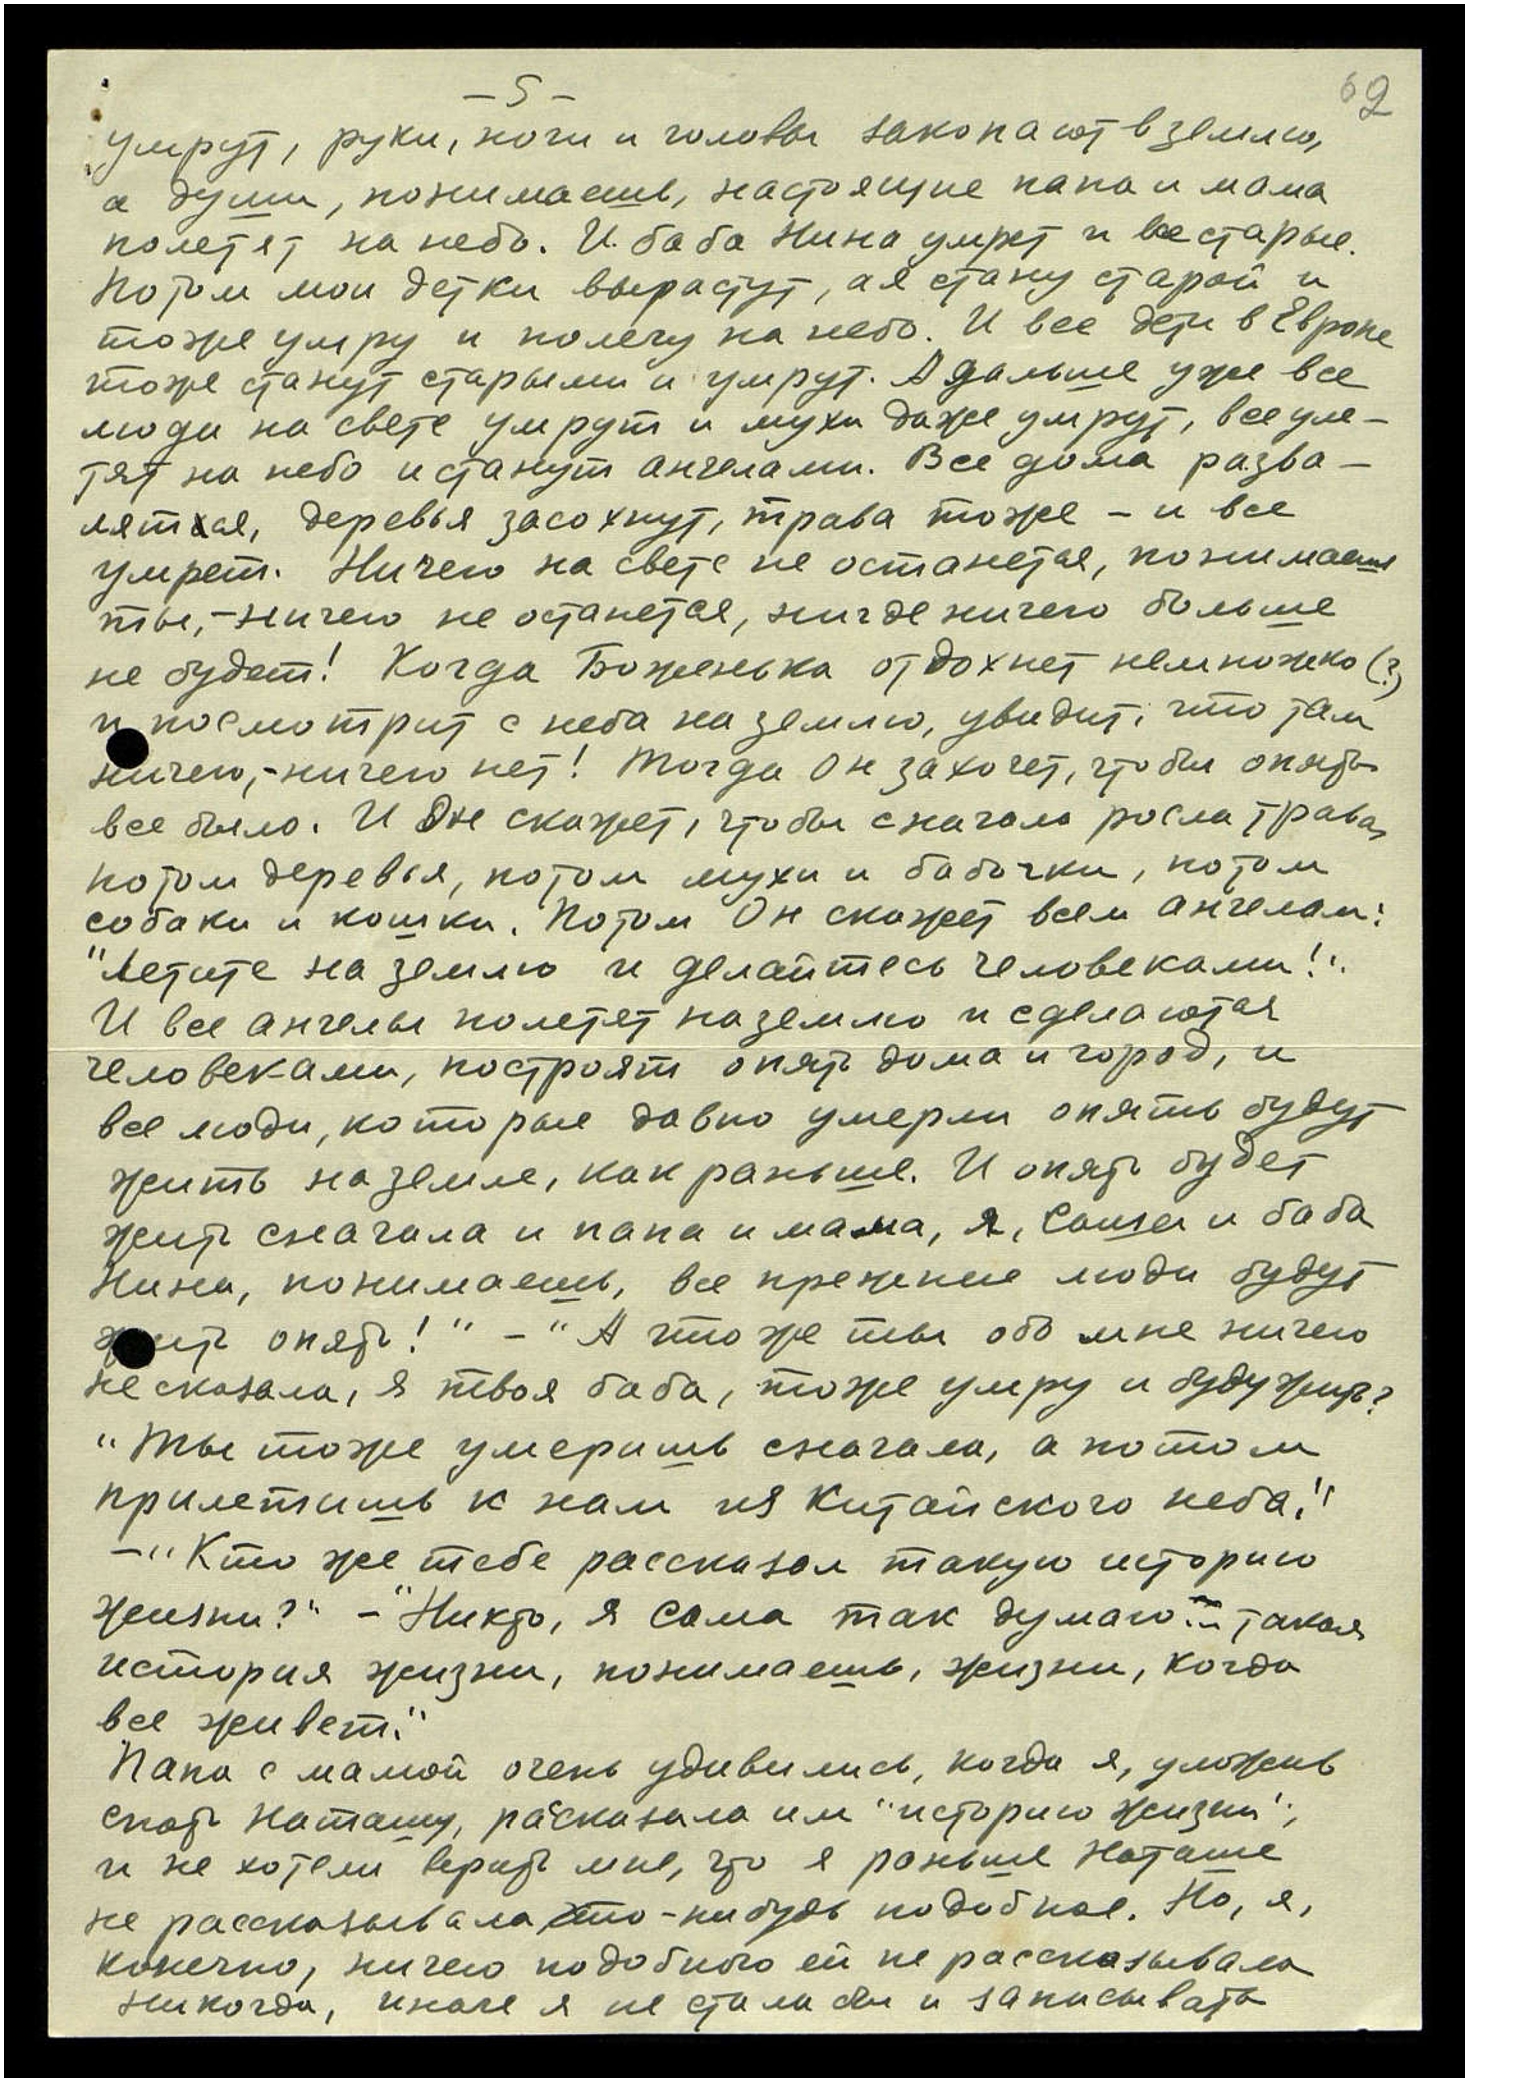 62
– 5 –
умрут, руки, ноги и головы закопают в землю,
а души, понимаешь, настоящие папа и мама
полетят на небо. И баба Нина умрет и все старые.
Потом мои детки вырастут, а я стану старой и
тоже умру и полечу на небо. И все дети в Европе
тоже станут старыми и умрут. А дальше уже все
люди на свете умрут и мухи даже умрут, все уле-
тят на небо и станут ангелами. Все дома разва-
лятся, деревья засохнут, трава тоже – и все
умрет. Ничего на свете не останется, понимаешь
ты, – ничего не останется, нигде ничего больше
не будет! Когда Боженька отдохнет немножко (?)
и посмотрит с неба на землю, увидит, что там
ничего, – ничего нет! Тогда Он захочет, чтобы опять
все было. И Он скажет, чтобы сначала росла трава,
потом деревья, потом мухи и бабочки, потом
собаки и кошки. Потом Он скажет всем ангелам:
"Летите на землю и делайтесь человеками!".
И все ангелы полетят на землю и сделаются
человеками, построят опять дома и город, и
все люди, которые давно умерли опять будут
жить на земле, как раньше. И опять будет
жить сначала и папа и мама, я, Саша и баба
Нина, понимаешь, все прежние люди будут
жить опять!" – "А что же ты обо мне ничего
не сказала, я твоя баба, тоже умру и буду жить?
"Ты тоже умеришь сначала, а потом
прилетишь к нам из Китайского неба."
– "Кто же тебе рассказал такую историю
жизни?" – "Никто, я сама так думаю... такая
история жизни, понимаешь, жизни, когда
все живет."
Папа с мамой очень удивились, когда я, уложив
спать Наташу, рассказала им "историю жизни",
и не хотели верить мне, что я раньше Наташе
не рассказывала что-нибудь подобное. Но, я,
конечно, ничего подобного ей не рассказывала
никогда, иначе я не стала бы и записывать